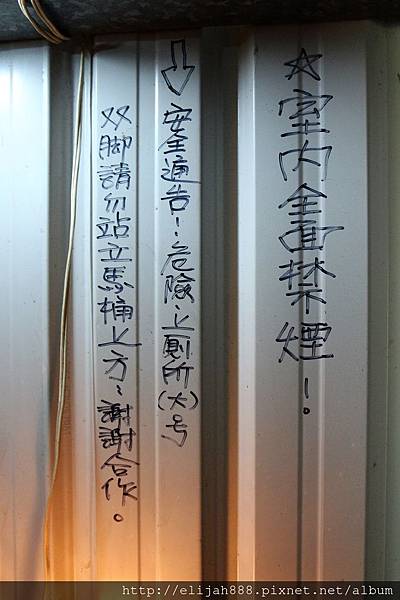 ☆室內全面禁煙!。
⇩安全通告!~危險~上厠所(大)号
双脚請勿站立馬桶上方~謝謝合作。
http://elijah888.pixnet.net/album